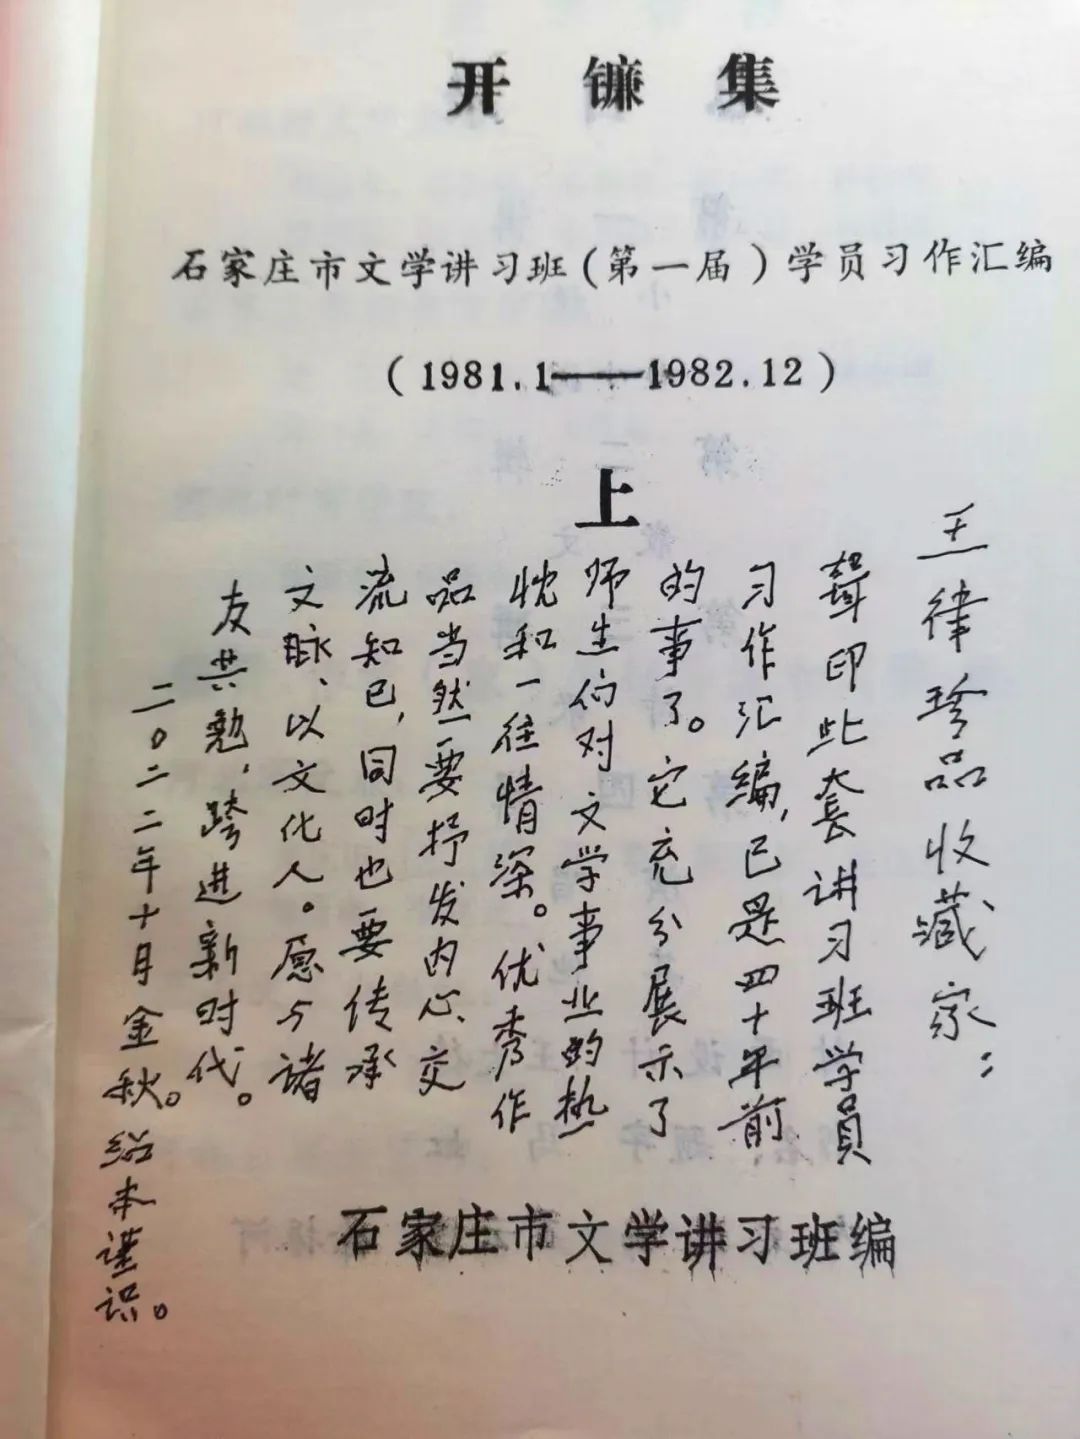 开镰集
石家庄市文学讲习班(第一届)学员习作汇编
(1981.1——1982.12)
上
王律珍品收藏家：
印此套讲习班学员
习作汇编,已是四十年前
的事了。它充分展示了
师生们对文学事业的热
忱和一往情深。优秀作
品当然要抒发内心、交
流知己,同时也要传承
文脉、以文化人。愿与诸
友共勉,跨进新时代。
二〇二二年十月金秋。绍本谨识。
石家庄市文学讲习班编